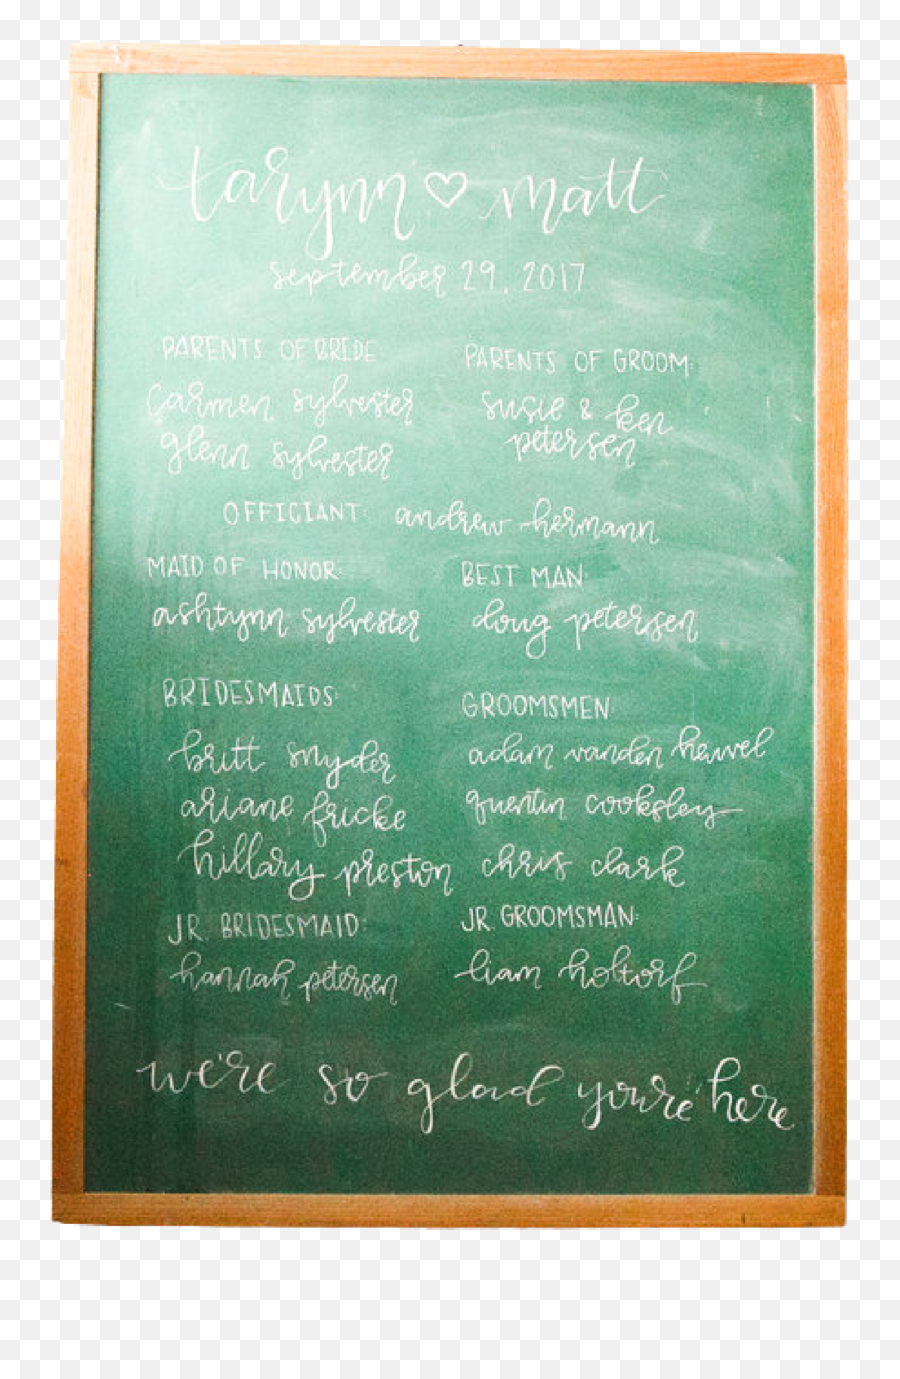 tarynn ♡ matt
september 29, 2017
PARENTS OF BRIDE
carmen sylvester
glenn sylvester
PARENTS OF GROOM:
susie & ken
petersen
OFFICIANT: andrew hermann
MAID OF HONOR:
ashtynn sylvester
BEST MAN:
doug petersen
BRIDESMAIDS:
britt snyder
ariane fricke
hillary preston
GROOMSMEN
adam vanden heuvel
quentin cooksley
chris clark
JR. BRIDESMAID:
hannah petersen
JR. GROOMSMAN:
liam holtorf
we're so glad you're here